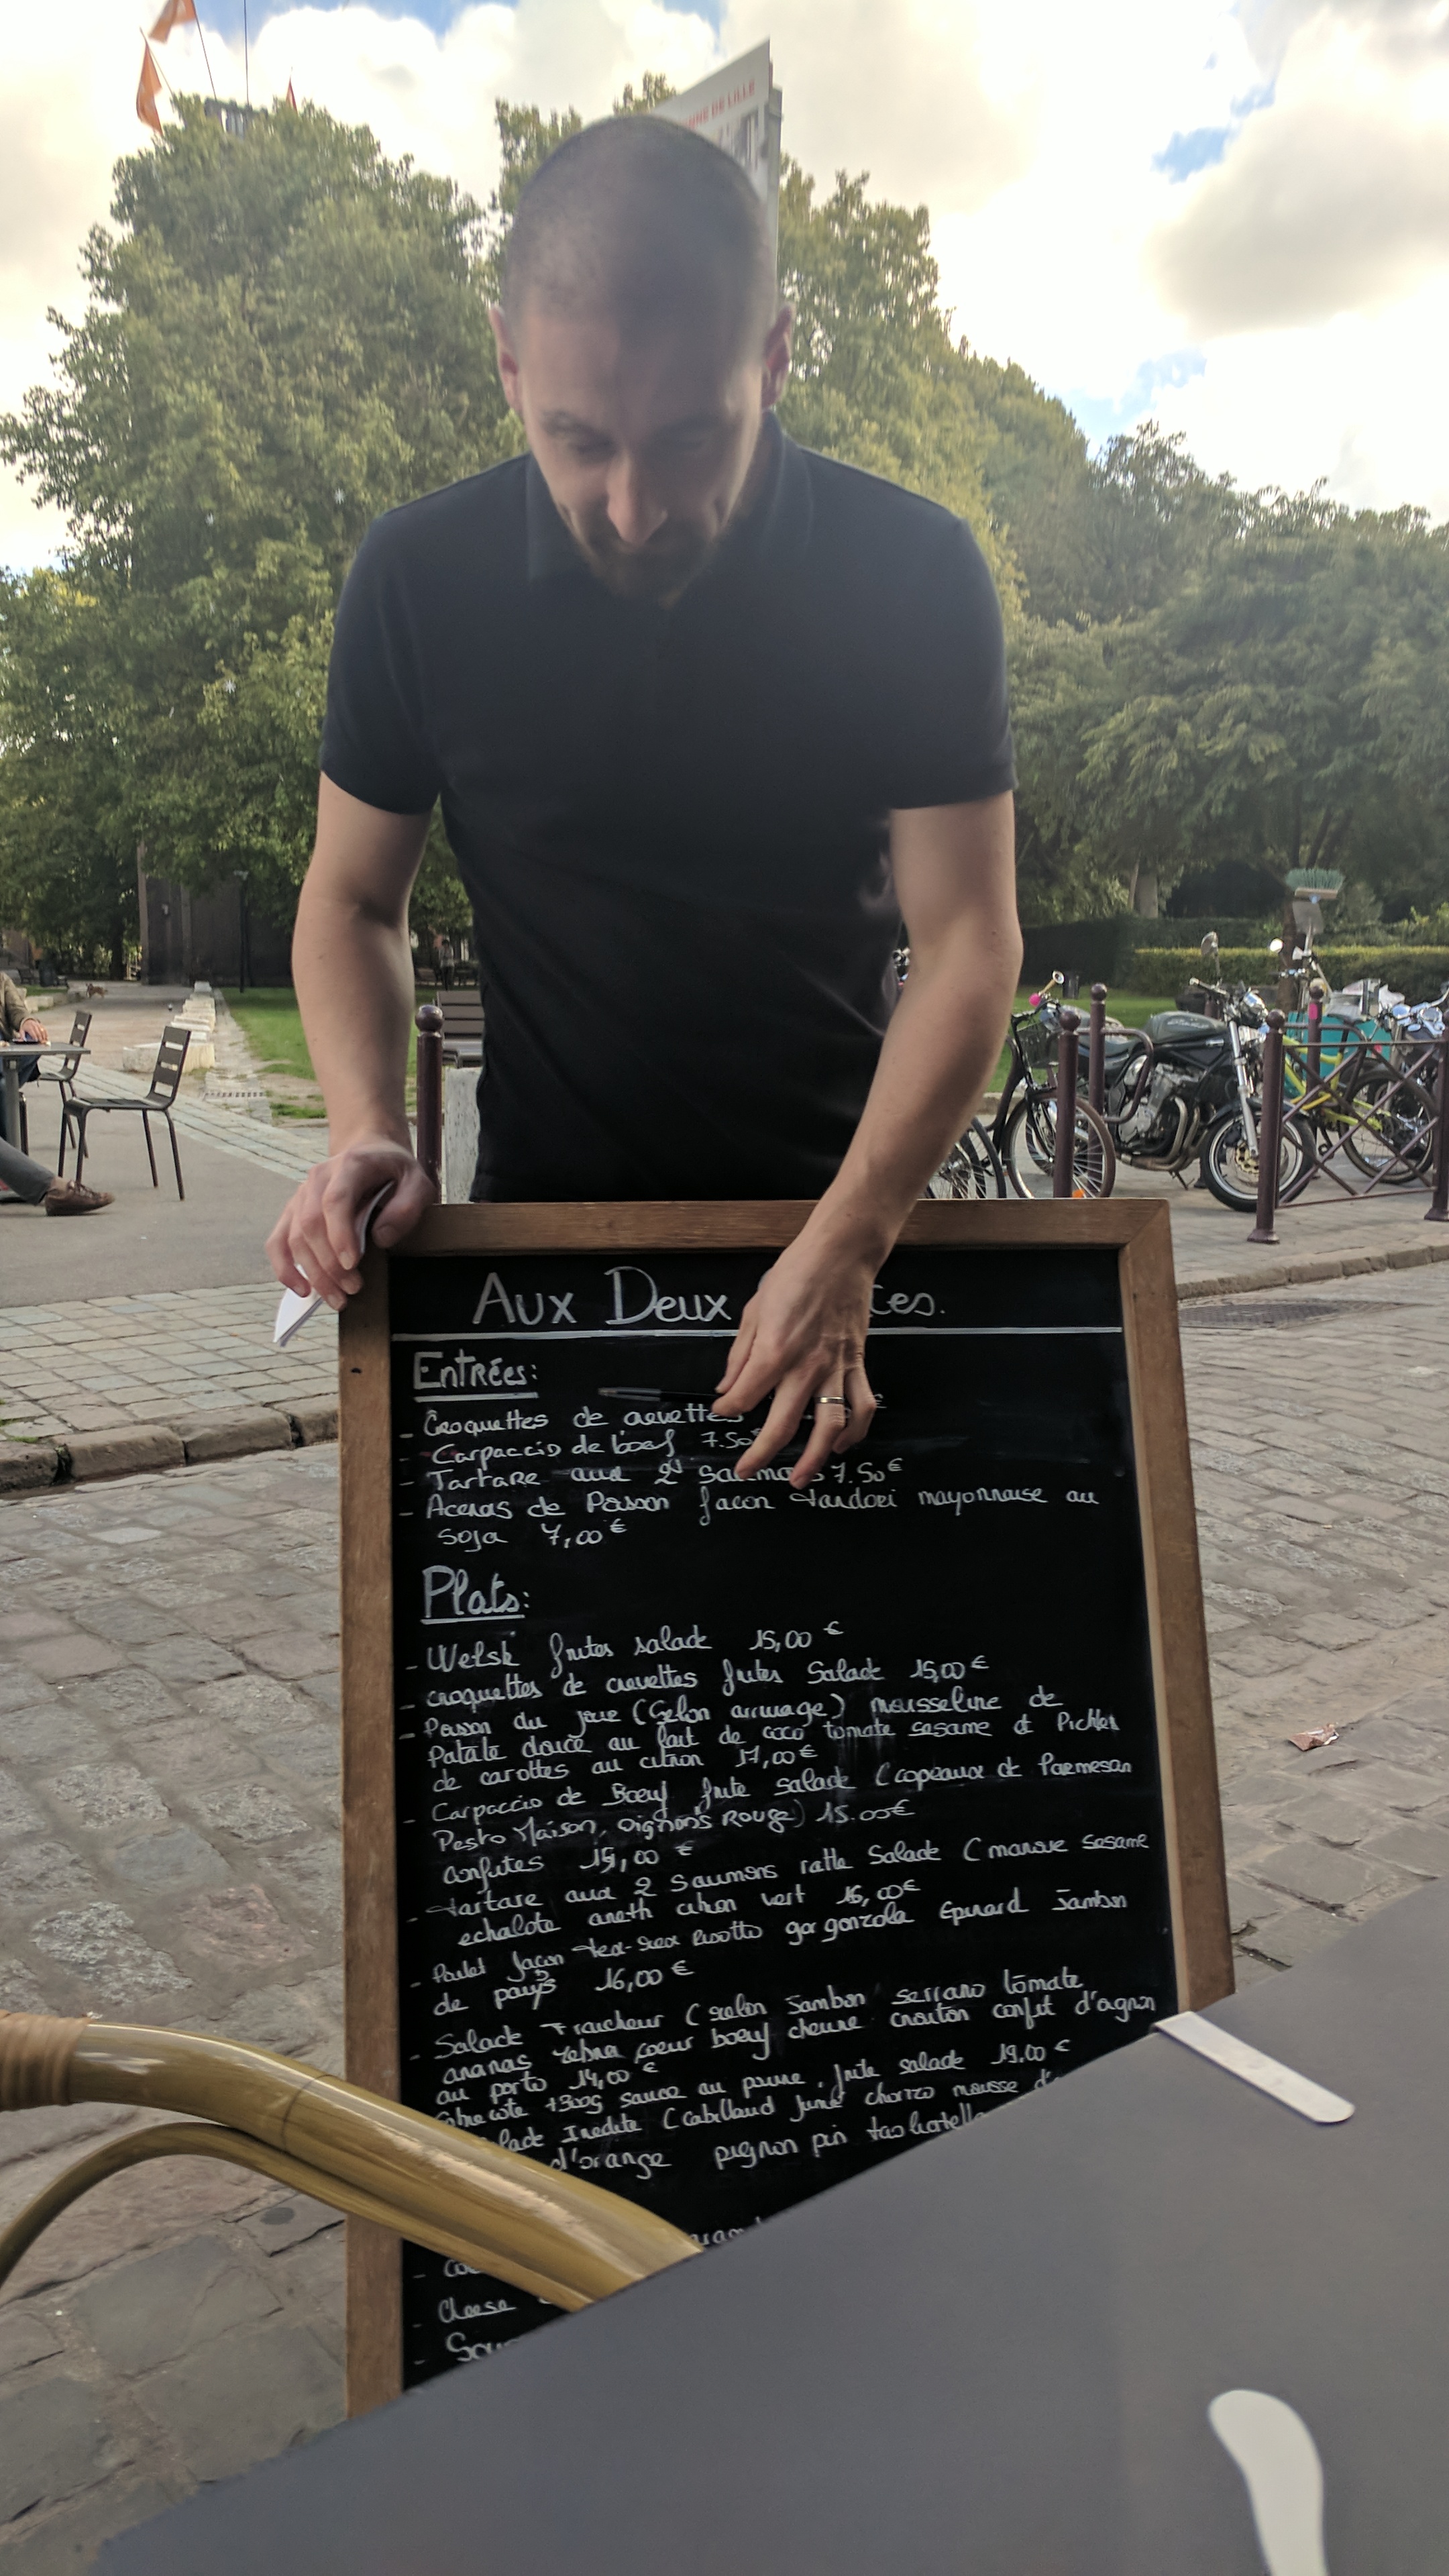 NNE DE LILLE
Aux Deux tes.
Entrées:
- Croquettes de crevettes €
- Carpaccio de boeuf 7.50
- Tartare aux 2 Saumons 7.50€
- Acras de Poisson façon tandori mayonnaise au
soja 7,00€
Plats:
- Welsh frites salade 15,00 €
- croquettes de crevettes frites Salade 15,00€
- Poisson du jour (Selon arrivage) mousseline de
Patate douce au lait de coco tomate sesame et Pickles
de carottes au citron 17,00€
- Carpaccio de Boeuf frite salade (copeaux de Parmesan
Pesto Maison, oignons Rouge) 15.00€
confites 15,00 €
- tartare aux 2 Saumons ratte Salade (mangue sesame
echalote aneth citron vert 16,00€
- Poulet façon tex-mex Risotto gorgonzola Epinard Jambon
de pays 16,00 €
- Salade Fraicheur (melon Jambon serrano tomate
ananas zebra coeur boeuf chevre crouton confit d'oignon
au porto 14,00 €
cote +300g sauce au poivre, frite salade 19.00 €
lade Inedite (cabillaud fumé chorizo mousse d'
d'orange pignon pin
- Co
- Cheese
- Sou